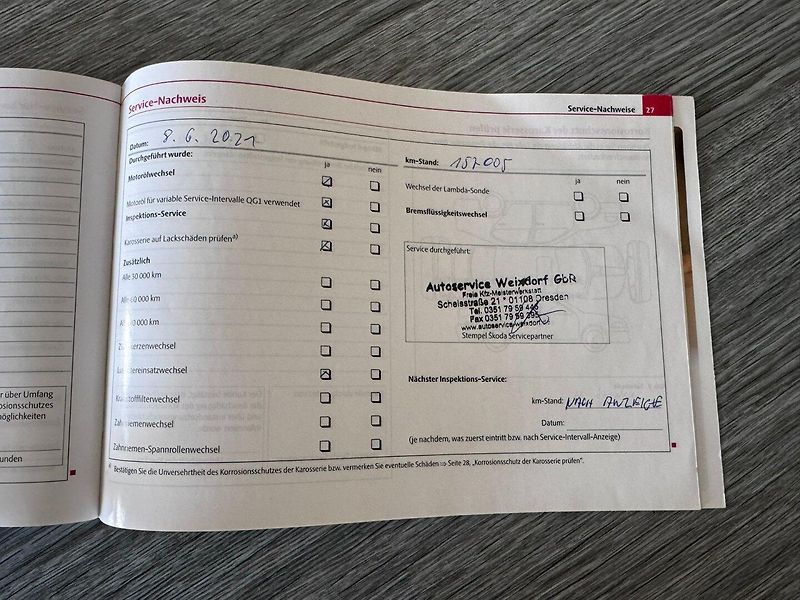 Service-Nachweis
Service-Nachweise 27
Datum: 8. 6. 2021
Durchgeführt wurde:
ja nein
Motorölwechsel
Motoröl für variable Service-Intervalle QG1 verwendet
Inspektions-Service
Karosserie auf Lackschäden prüfen a)
Zusätzlich
Alle 30 000 km
Alle 60 000 km
000 km
Zündkerzenwechsel
Luftfiltereinsatzwechsel
Kraftstofffilterwechsel
Zahnriemenwechsel
Zahnriemen-Spannrollenwechsel
km-Stand: 157005
ja nein
Wechsel der Lambda-Sonde
Bremsflüssigkeitswechsel
Service durchgeführt:
Autoservice Weixdorf GbR
Freie Kfz-Meisterwerkstatt
Schelsstraße 21 * 01108 Dresden
Tel. 0351 79 59 446
Fax 0351 79 59 395
Stempel Škoda Servicepartner
Nächster Inspektions-Service:
km-Stand: NACH ANZEIGE
Datum:
(je nachdem, was zuerst eintritt bzw. nach Service-Intervall-Anzeige)
a) Bestätigen Sie die Unversehrtheit des Korrosionsschutzes der Karosserie bzw. vermerken Sie eventuelle Schäden ⇒ Seite 28, „Korrosionsschutz der Karosserie prüfen“.
r über Umfang
osionsschutzes
möglichkeiten
unden